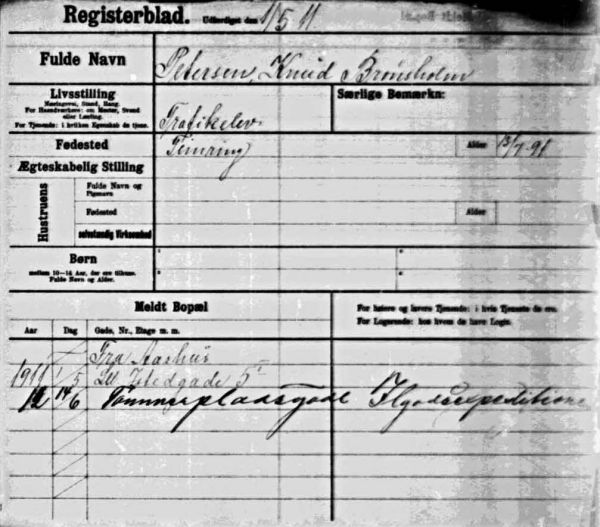 Registerblad. Udfærdiget den 1/5 11
Fulde Navn Petersen, Knud Brønsholm
Livsstilling
Næringsvej, Stand, Rang.
For Haandværkere: om Mester, Svend
eller Lærling.
For Tjenende: i hvilken Egenskab de tjene.
Trafikelev
Særlige Bemærkn:
Fødested Timring Alder 13/7-91
Ægteskabelig Stilling
Hustruens
Fulde Navn og
Pigenavn
Fødested Alder
selvstændig Virksomhed
Børn
mellem 10-14 Aar, der ere tilhuse.
Fulde Navn og Alder.
Meldt Bopæl
For høiere og lavere Tjenende: i hvis Tjeneste de ere.
For Logerende: hos hvem de have Logis.
Aar Dag Gade, Nr., Etage m. m.
Fra Aarhus
1911 1/5 Ll. 5
12 14/6 Tømmerpladsgade Ilgodsexpeditionen